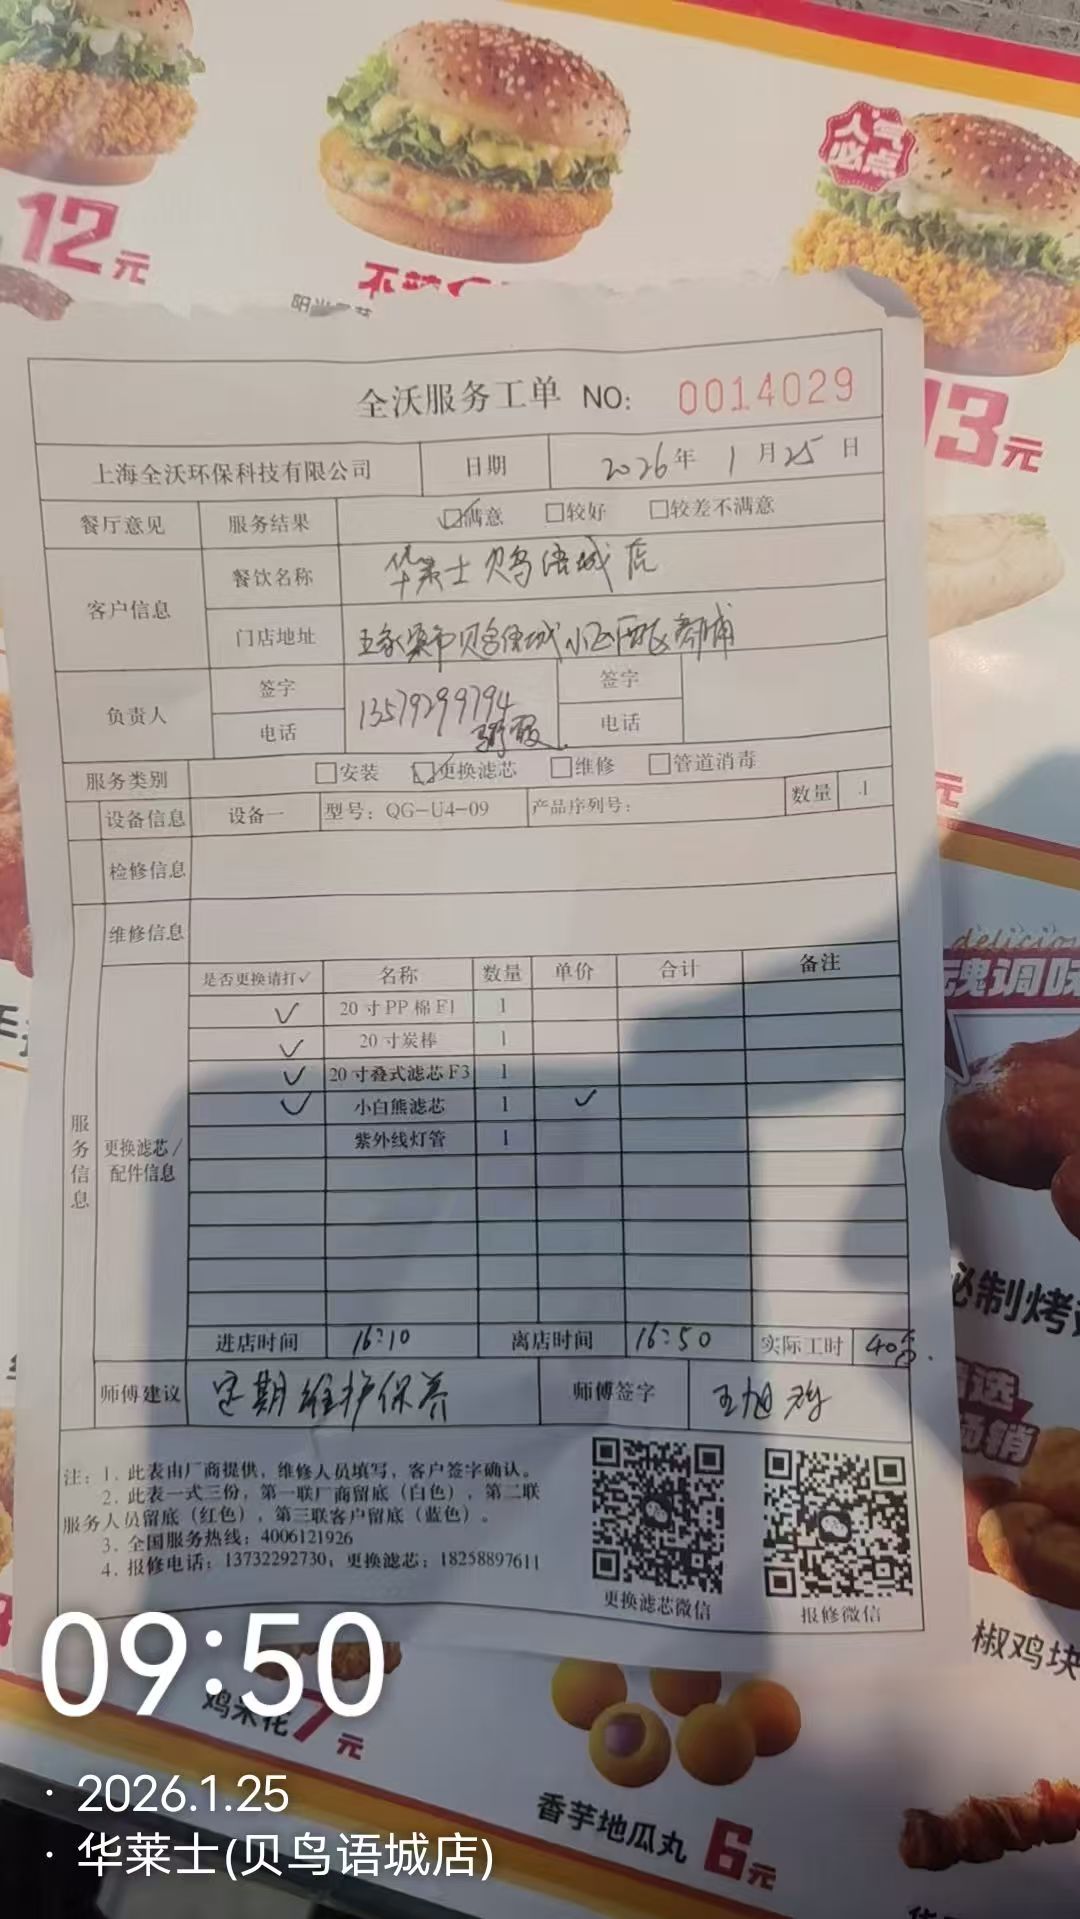 人气
必点
12元
不辣
13元
全沃服务工单 NO: 0014029
上海全沃环保科技有限公司 日期 2026年 1月25日
餐厅意见 服务结果 ☑满意 □较好 □较差不满意
客户信息 餐饮名称 华莱士贝鸟语城店
门店地址 五家渠市贝鸟语城小区西区商铺
负责人 签字 签字
电话 13579299794 电话
服务类别 □安装 ☑更换滤芯 □维修 □管道消毒
设备信息 设备一 型号: QG-U4-09 产品序列号: 数量 1
检修信息
维修信息
服务信息
更换滤芯/
配件信息
是否更换请打✓ 名称 数量 单价 合计 备注
✓ 20寸PP棉F1 1
✓ 20寸炭棒 1
✓ 20寸叠式滤芯F3 1
✓ 小白熊滤芯 1 ✓
紫外线灯管 1
进店时间 16:10 离店时间 16:50 实际工时 40分.
师傅建议 定期维护保养 师傅签字 王旭
注: 1. 此表由厂商提供，维修人员填写，客户签字确认。
2. 此表一式三份，第一联厂商留底（白色），第二联
服务人员留底（红色），第三联客户留底（蓝色）。
3. 全国服务热线: 4006121926
4. 报修电话: 13732292730; 更换滤芯: 18258897611
更换滤芯微信 报修微信
delicious
魂调味
必制烤
椒鸡块
7元
香芋地瓜丸 6元
09:50
· 2026.1.25
· 华莱士(贝鸟语城店)